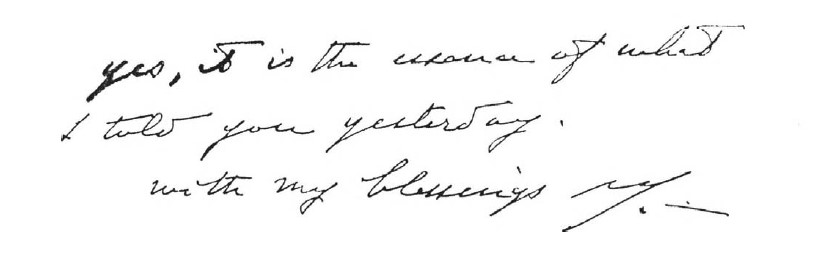 yes, it is the essence of what
I told you yesterday.
with my blessings